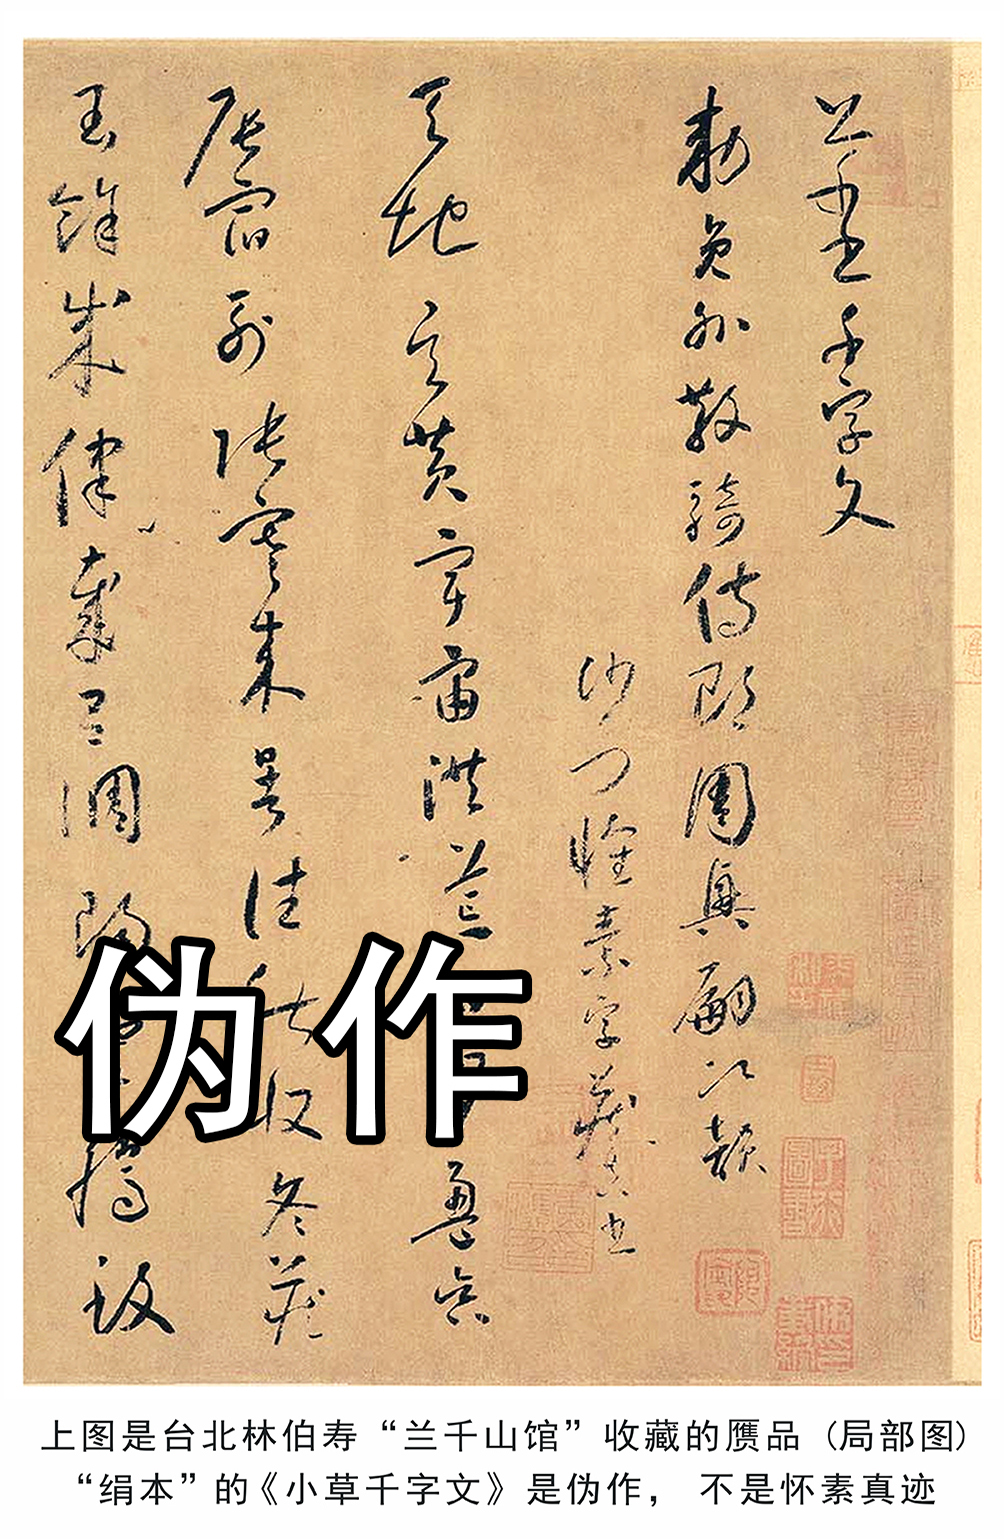 千字文
勅員外散騎侍郎周興嗣次韻
沙門懷素字藏真書
天地玄黃宇宙洪荒盈昃
辰宿列張寒來暑往秋收冬藏
閏餘成律歲呂調陽騰致
伪作
上图是台北林伯寿“兰千山馆”收藏的赝品（局部图）
“绢本”的《小草千字文》是伪作， 不是怀素真迹